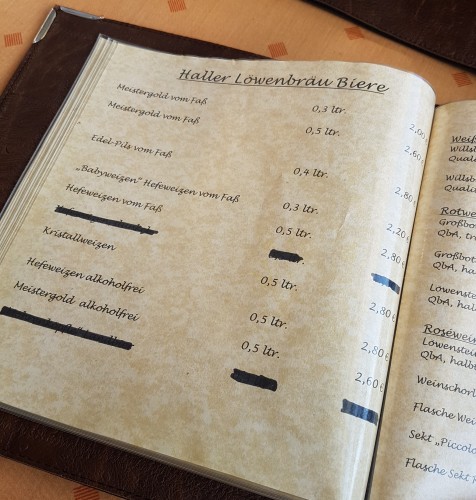 Haller Löwenbräu Biere
Meistergold vom Faß 0,3 ltr. 2,00
Meistergold vom Faß 0,5 ltr. 2,60
Edel-Pils vom Faß 0,4 ltr. 2,80
„Babyweizen" Hefeweizen vom Faß 0,3 ltr. 2,20
Hefeweizen vom Faß 0,5 ltr. 2,80
Kristallweizen 0,5 ltr. 2,80
Hefeweizen alkoholfrei 0,5 ltr. 2,80
Meistergold alkoholfrei 0,5 ltr. 2,60
Weiß
Willsb
Qual
Willsb
Quali
Rotwe
Großbo
QbA, tr
Großbot
QbA, ha
Löwenste
QbA, hal
Roséwein
Löwenstei
QbA, halb
Weinschorl
Flasche Wei
Sekt „Piccolo
Flasche Sekt